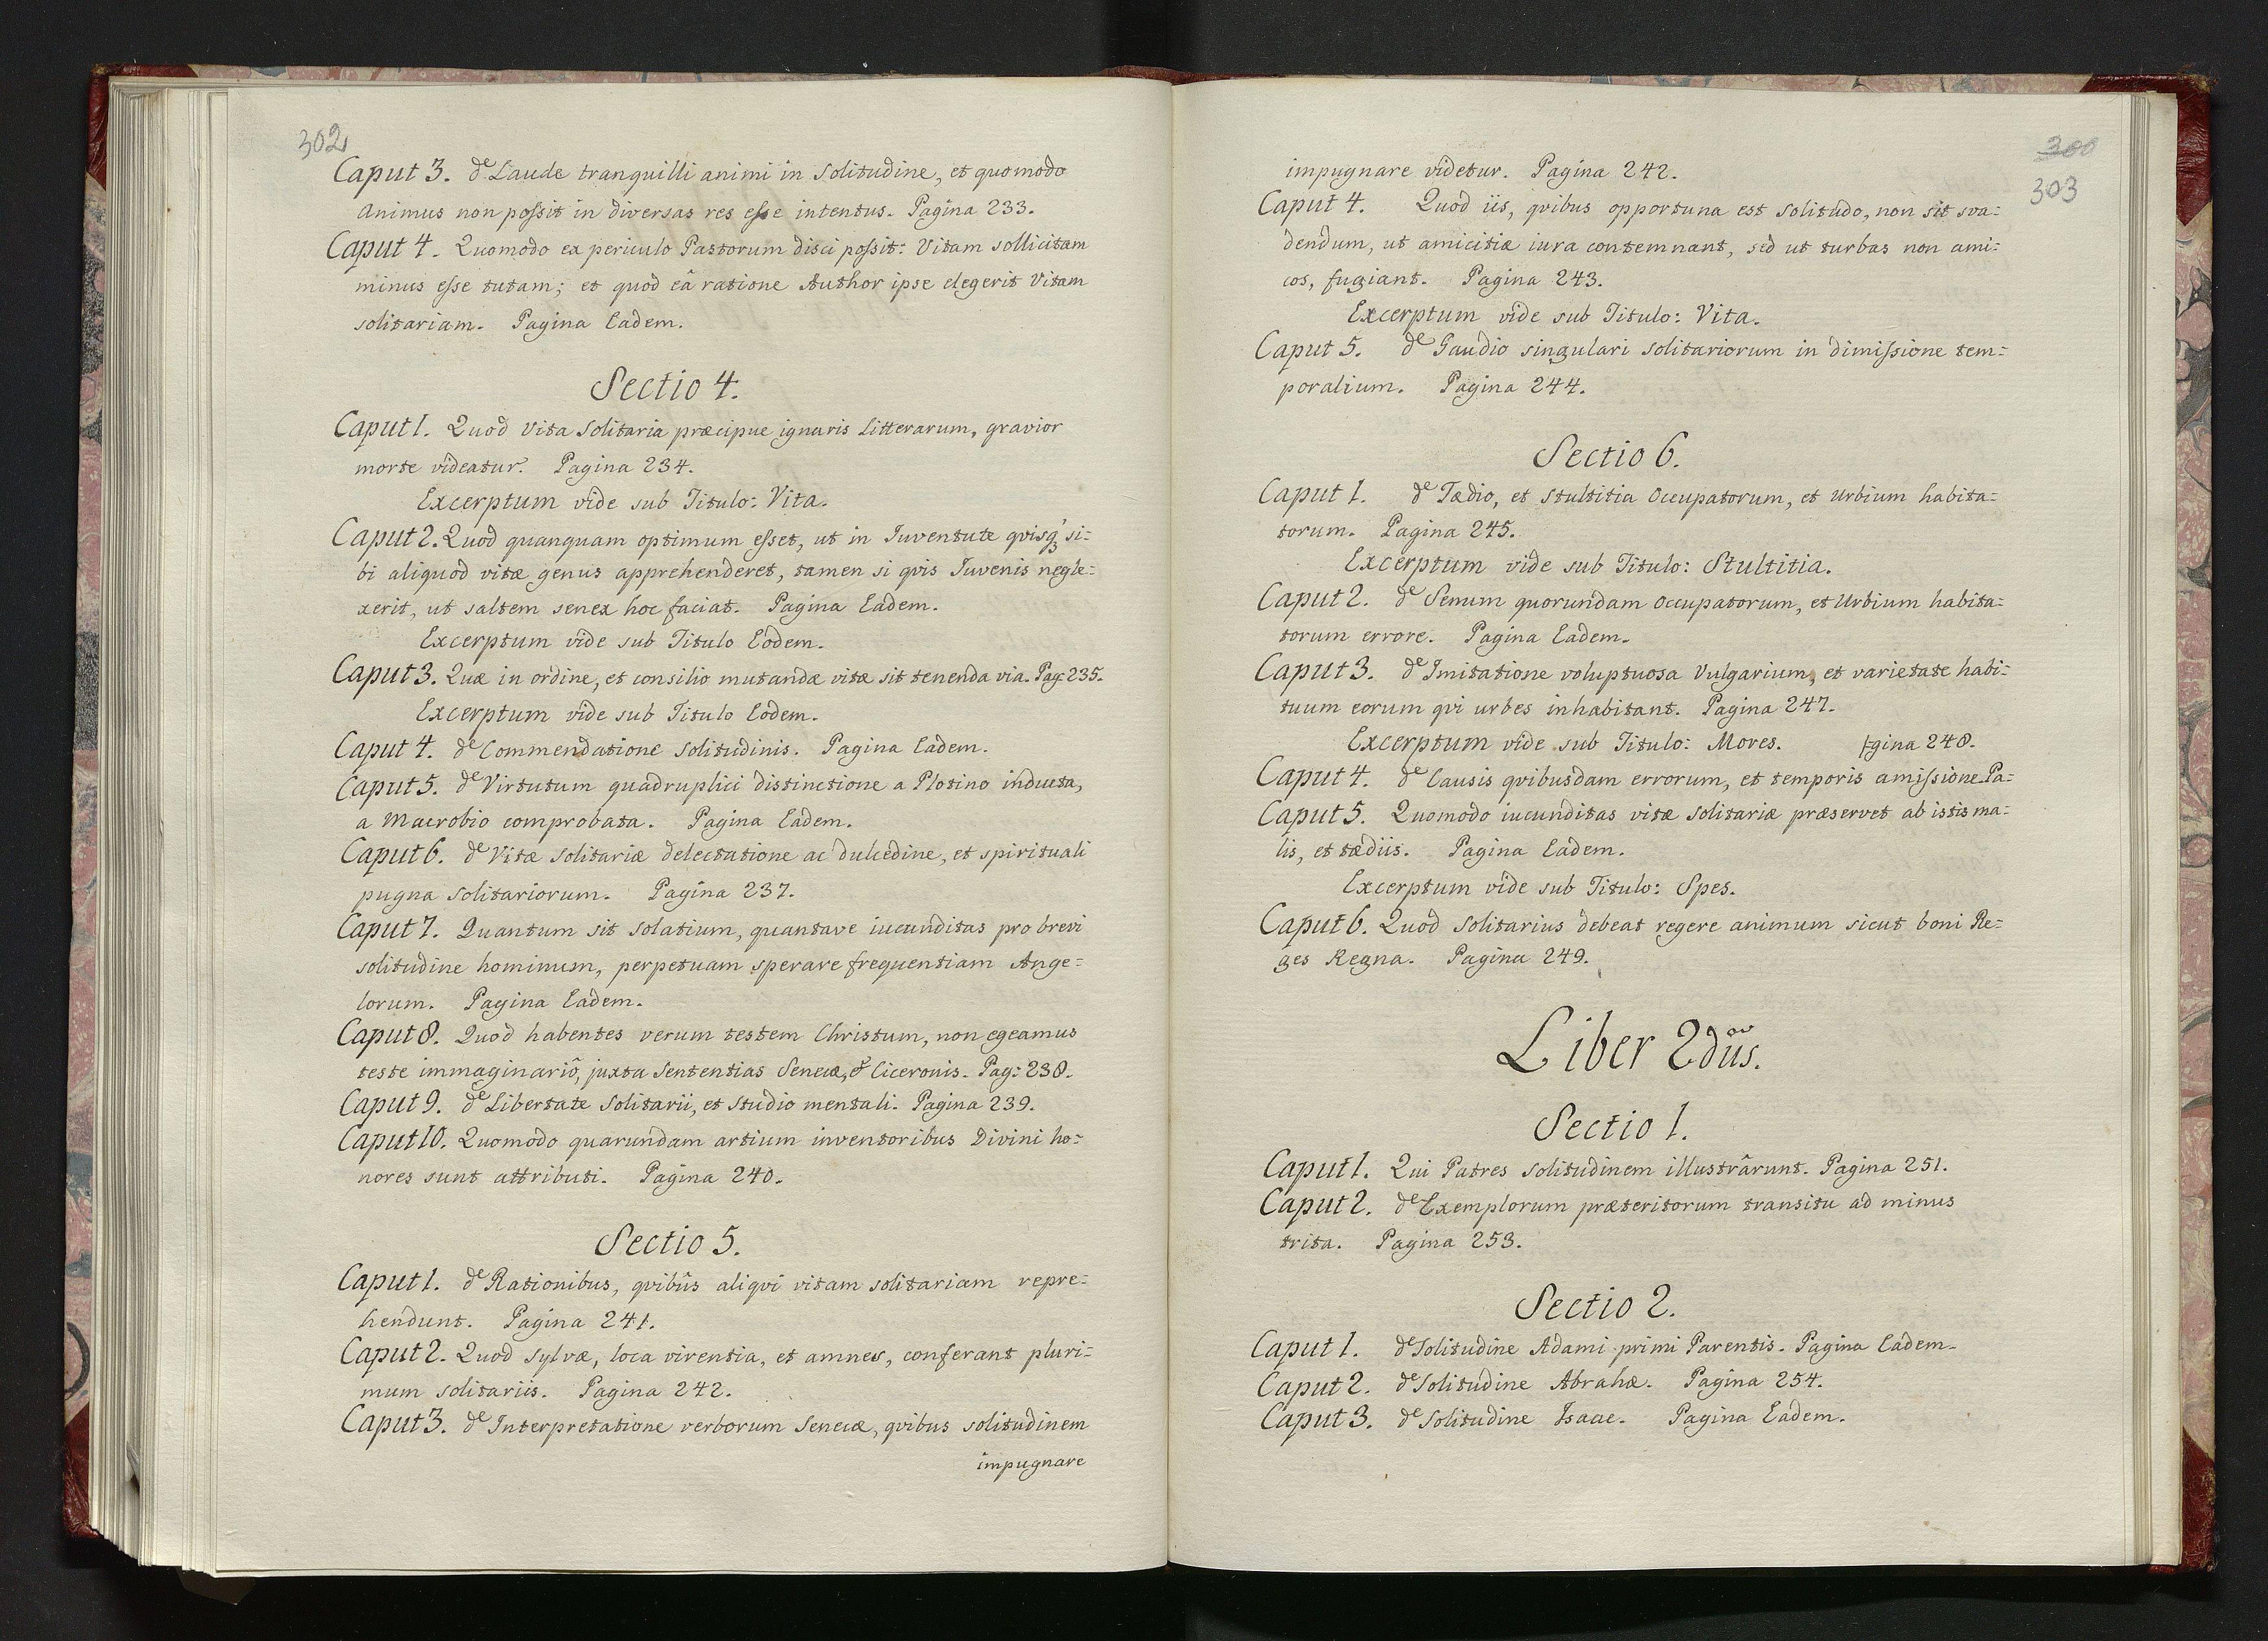 302
Caput 3. de Laude tranquilli animi in solitudine, et quomodo
animus non possit in diversas res esse intentus. Pagina 233.
Caput 4. Quomodo ex periculo Pastorum disci possit: Vitam sollicitam
minus esse tutam; et quod eâ ratione Author ipse elegerit Vitam
solitariam. Pagina Eadem.
Sectio 4.
Caput 1. Quod Vita Solitaria præcipue ignaris Litterarum, gravior
morte videatur. Pagina 234.
Excerptum vide sub Titulo: Vita.
Caput 2. Quod quanquam optimum esset, ut in Iuventute qvisq si=
bi aliquod vitæ genus apprehenderet, tamen si qvis Iuvenis negle=
xerit, ut saltem senex hoc faciat. Pagina Eadem.
Excerptum vide sub Titulo Eodem.
Caput 3. Quæ in ordine, et consilio mutandæ vitæ sit tenenda via. Pag: 235.
Excerptum vide sub Titulo Eodem.
Caput 4. de Commendatione solitudinis. Pagina Eadem.
Caput 5. de Virtutum quadruplici distinctione a Plotino inducta,
a Macrobio comprobata. Pagina Eadem.
Caput 6. de Vitæ solitariæ delectatione ac dulcedine, et spirituali
pugna solitariorum. Pagina 237.
Caput 7. Quantum sit solatium, quantave iucunditas pro brevi
solitudine hominum, perpetuam sperare frequentiam Ange=
lorum. Pagina Eadem.
Caput 8. Quod habentes verum testem Christum, non egeamus
teste immaginariô, juxta Sententias Senecæ, et Ciceronis. Pag: 238.
Caput 9. de Libertate Solitarii, et studio mentali. Pagina 239.
Caput 10. Quomodo quarundam artium inventoribus Divini ho=
nores sunt attributi. Pagina 240.
Sectio 5.
Caput 1. de Rationibus, qvibûs aliqvi vitam solitariam repre=
hendunt. Pagina 241.
Caput 2. Quod sylvæ, loca virentia, et amnes, conferant pluri=
mum solitariis. Pagina 242.
Caput 3. de Interpretatione verborum Senecæ, qvibus solitudinem
impugnare
300
303
impugnare videtur. Pagina 242.
Caput 4. Quod iis, qvibus opportuna est solitudo, non sit sva=
dendum, ut amicitiæ iura contemnant, sed ut turbas non ami=
cos, fugiant. Pagina 243.
Excerptum vide sub Titulo: Vita.
Caput 5. de Gaudio singulari solitariorum in dimissione tem=
poralium. Pagina 244.
Sectio 6.
Caput 1. de Tædio, et stultitia Occupatorum, et Urbium habita=
torum. Pagina 245.
Excerptum vide sub Titulo: Stultitia.
Caput 2. de Senum quorundam Occupatorum, et Urbium habita=
torum errore. Pagina Eadem.
Caput 3. de Imitatione voluptuosa Vulgarium, et varietate habi=
tuum eorum qvi urbes inhabitant. Pagina 247.
Excerptum vide sub Titulo: Mores. gina 248.
Caput 4. de Causis qvibusdam errorum, et temporis amissione. Pa=
Caput 5. Quomodo iucunditas vitæ solitariæ præservet ab istis ma=
lis, et tædiis. Pagina Eadem.
Excerptum vide sub Titulo: Spes.
Caput 6. Quod Solitarius debeat regere animum sicut boni Re=
ges Regna. Pagina 249.
Liber 2dûs.
Sectio 1.
Caput 1. Qui Patres solitudinem illustrârunt. Pagina 251.
Caput 2. de Exemplorum præteritorum transitu ad minus
trita. Pagina 253.
Sectio 2.
Caput 1. de Solitudine Adami primi Parentis. Pagina Eadem.
Caput 2. de Solitudine Abrahæ. Pagina 254.
Caput 3. de Solitudine Isaac. Pagina Eadem.